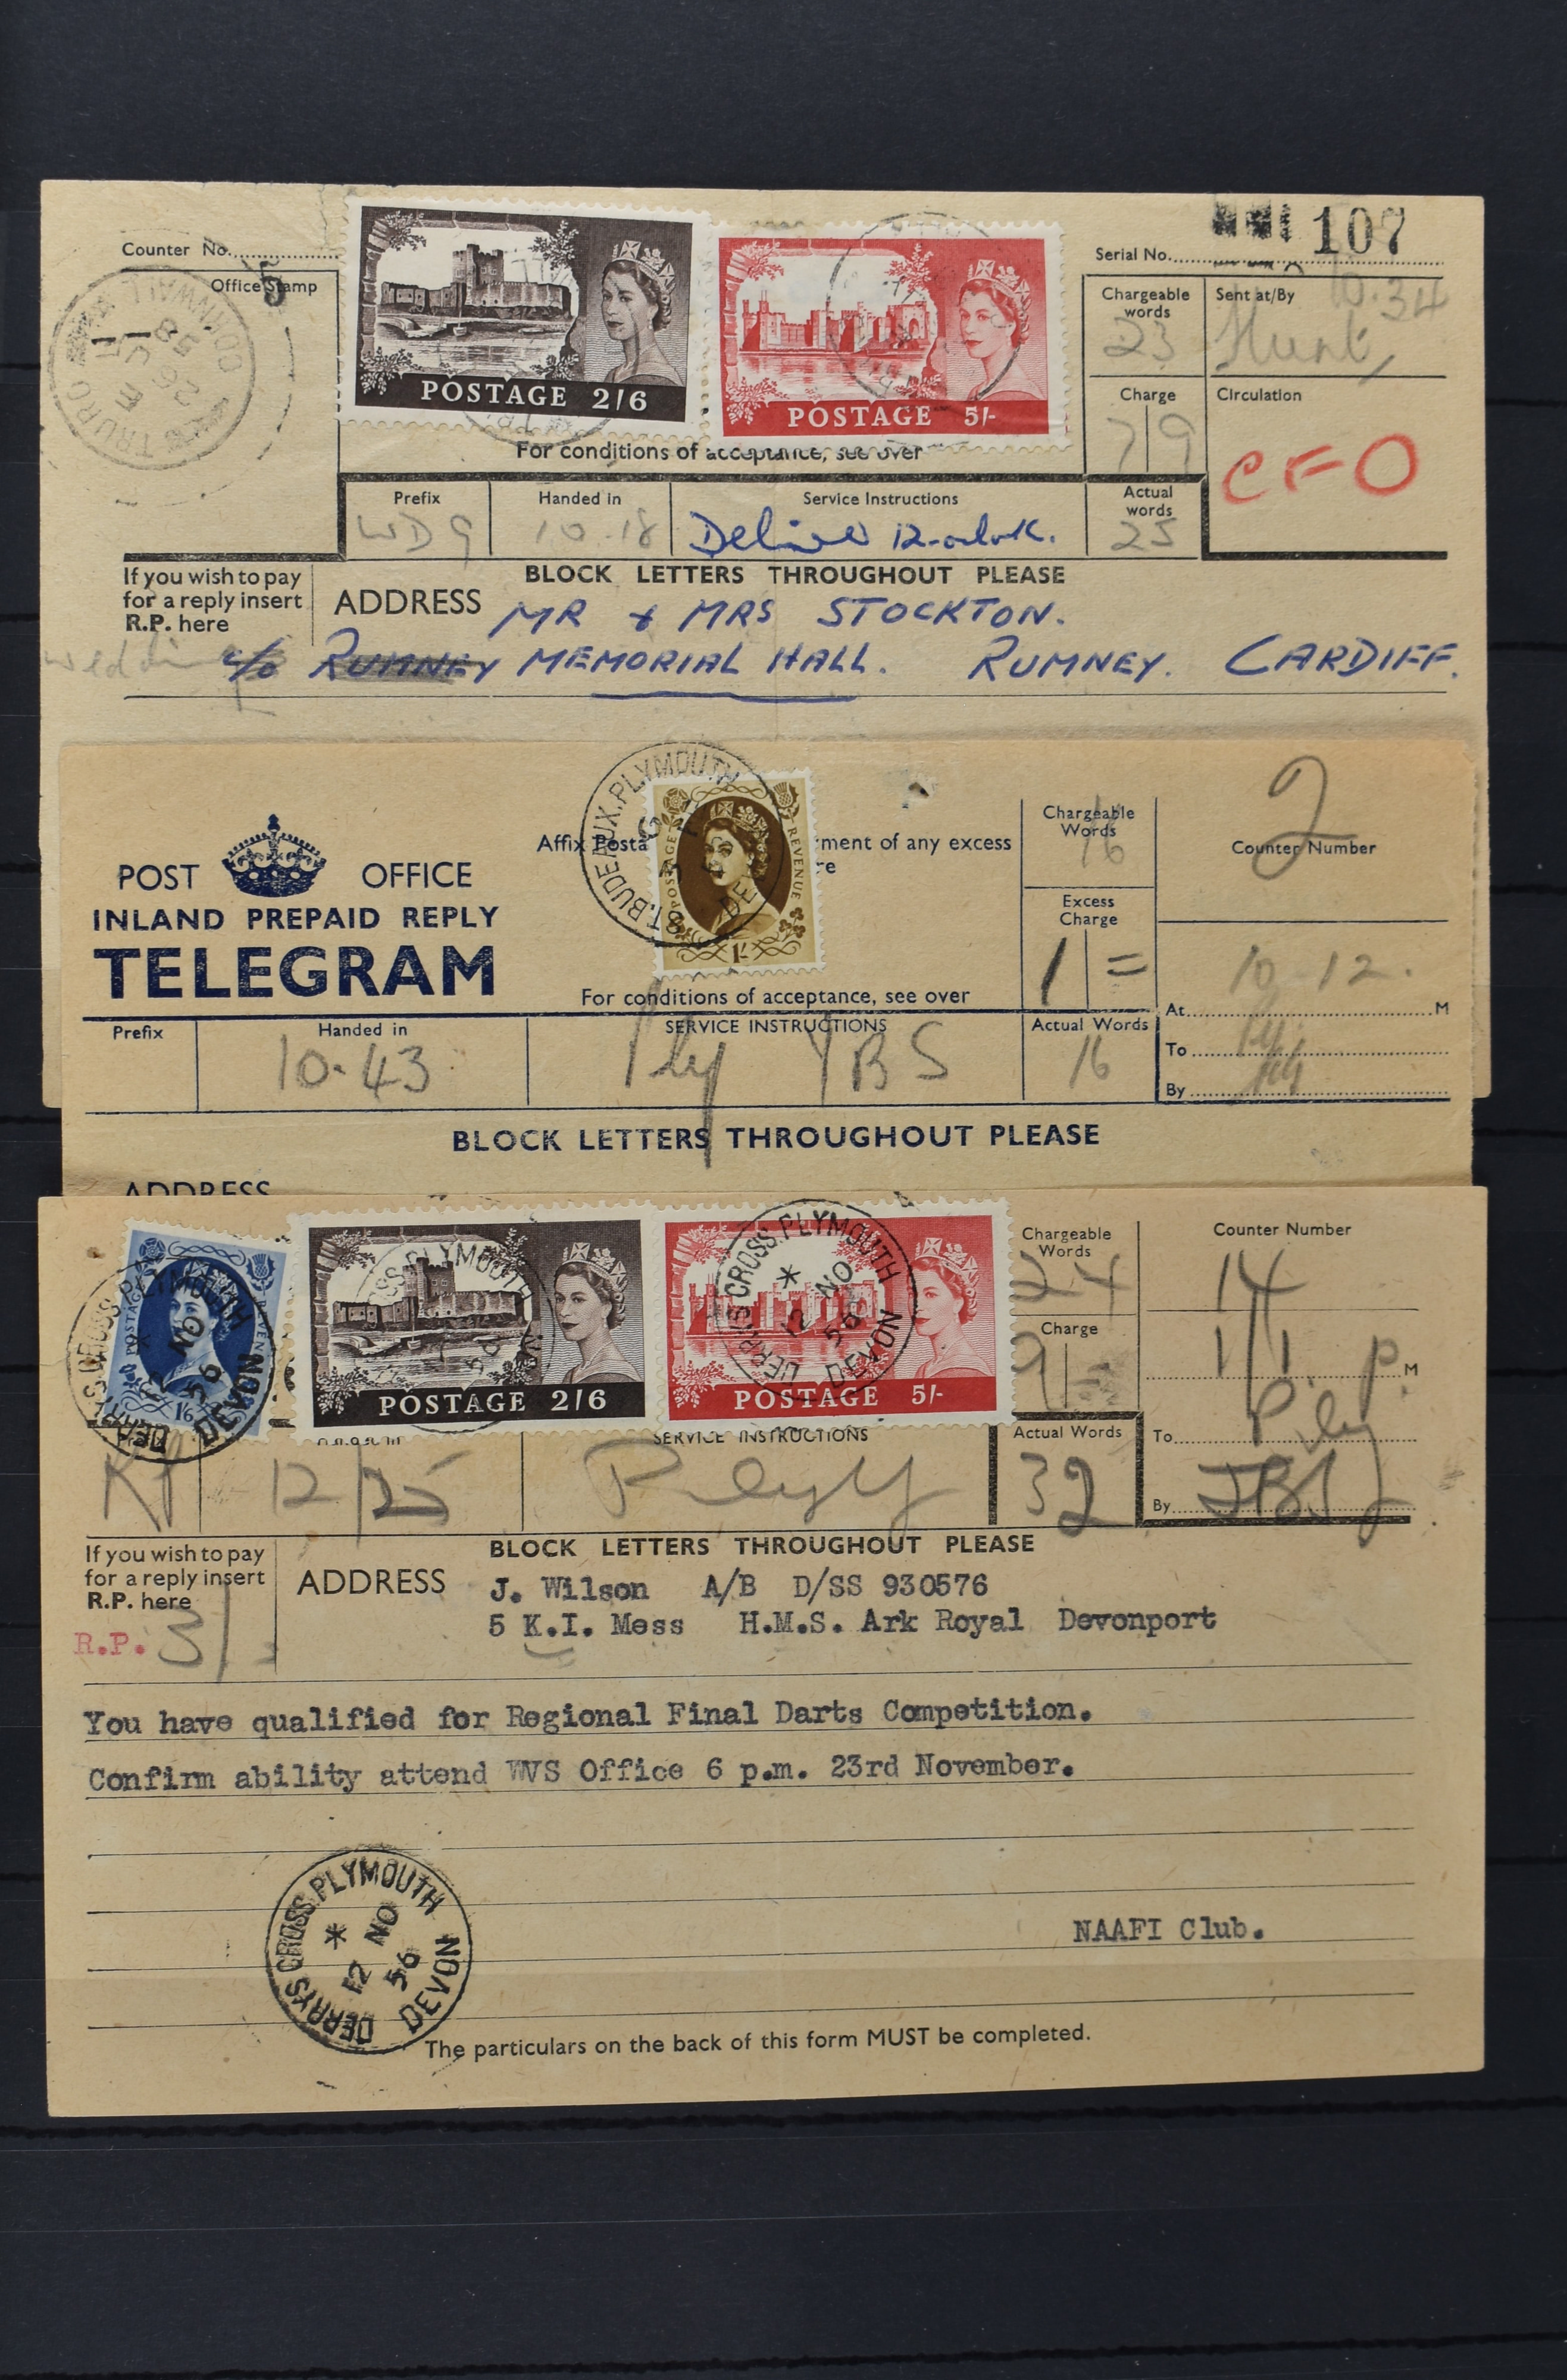 Counter No.
5
Office Stamp
TRURO CORNWALL
POSTAGE 2/6
POSTAGE 5/-
Serial No. 107
Chargeable words
23
Sent at/By 10.34
Hunt
Charge
7/9
Circulation
CFO
For conditions of acceptance, see over
Prefix
WD9
Handed in
10.18
Service Instructions
Deliver 12-oclock.
Actual words
25
If you wish to pay
for a reply insert
R.P. here
BLOCK LETTERS THROUGHOUT PLEASE
ADDRESS MR & MRS STOCKTON.
wedding c/o RUMNEY MEMORIAL HALL. RUMNEY. CARDIFF.
POST OFFICE
INLAND PREPAID REPLY
TELEGRAM
ST. BUDEAUX. PLYMOUTH
POSTAGE REVENUE
1/-
Affix Posta
ment of any excess
re
For conditions of acceptance, see over
Chargeable Words
16
Counter Number
2
Excess Charge
1/=
10-12.
At M
To
By
Prefix
Handed in
10.43
SERVICE INSTRUCTIONS
Ply YBS
Actual Words
16
BLOCK LETTERS THROUGHOUT PLEASE
ADDRESS
DERRYS CROSS. PLYMOUTH DEVON
12 NO 56
1/6
POSTAGE 2/6
POSTAGE 5/-
DERRYS CROSS. PLYMOUTH DEVON
12 NO 56
Chargeable Words
24
Counter Number
14
Charge
9/-
1/1 P. M
To
By
12/25
SERVICE INSTRUCTIONS
Actual Words
32
If you wish to pay
for a reply insert
R.P. here
R.P. 3/-
BLOCK LETTERS THROUGHOUT PLEASE
ADDRESS J. Wilson A/B D/SS 930576
5 K.I. Mess H.M.S. Ark Royal Devonport
You have qualified for Regional Final Darts Competition.
Confirm ability attend WVS Office 6 p.m. 23rd November.
NAAFI Club.
DERRYS CROSS. PLYMOUTH DEVON
12 NO 56
The particulars on the back of this form MUST be completed.